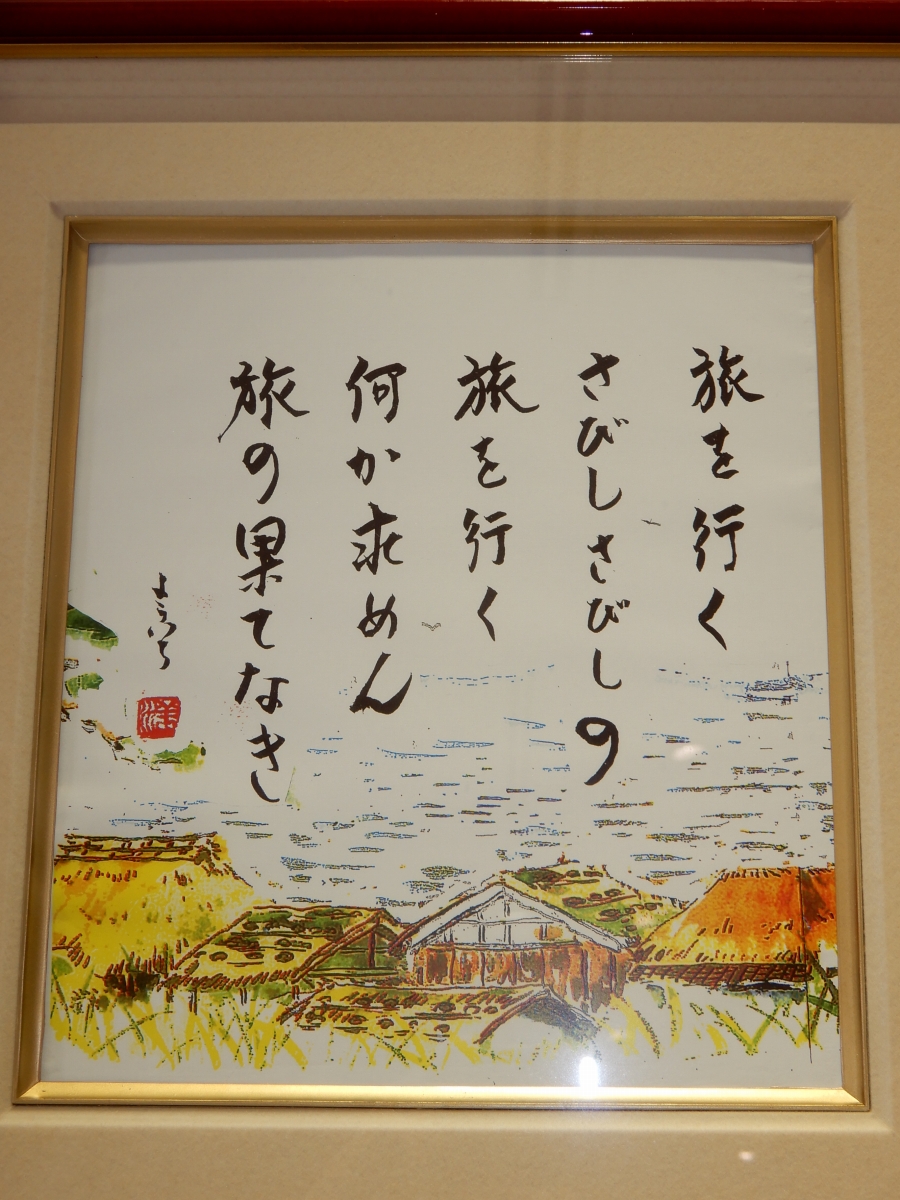 旅を行く
さびしさびしの
旅を行く
何か求めん
旅の果てなき
よういち